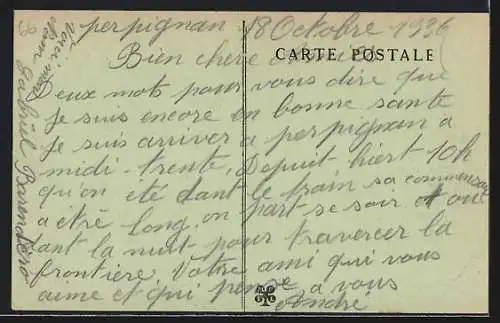 perpignan 18 Octobre 1936
CARTE POSTALE
Bien chère
Deux mots pour vous dire que
Je suis encore en bonne santé
Je suis arriver a perpignan a
midi - trente, Depuit hiert 10h
qu'on eté dant le train sa commensay
a être long. on part se soir
dant la nuit pour traverser la
frontiere. Votre ami qui vous
aime et qui pense a vous
André
Voici mon
nom Gabriel